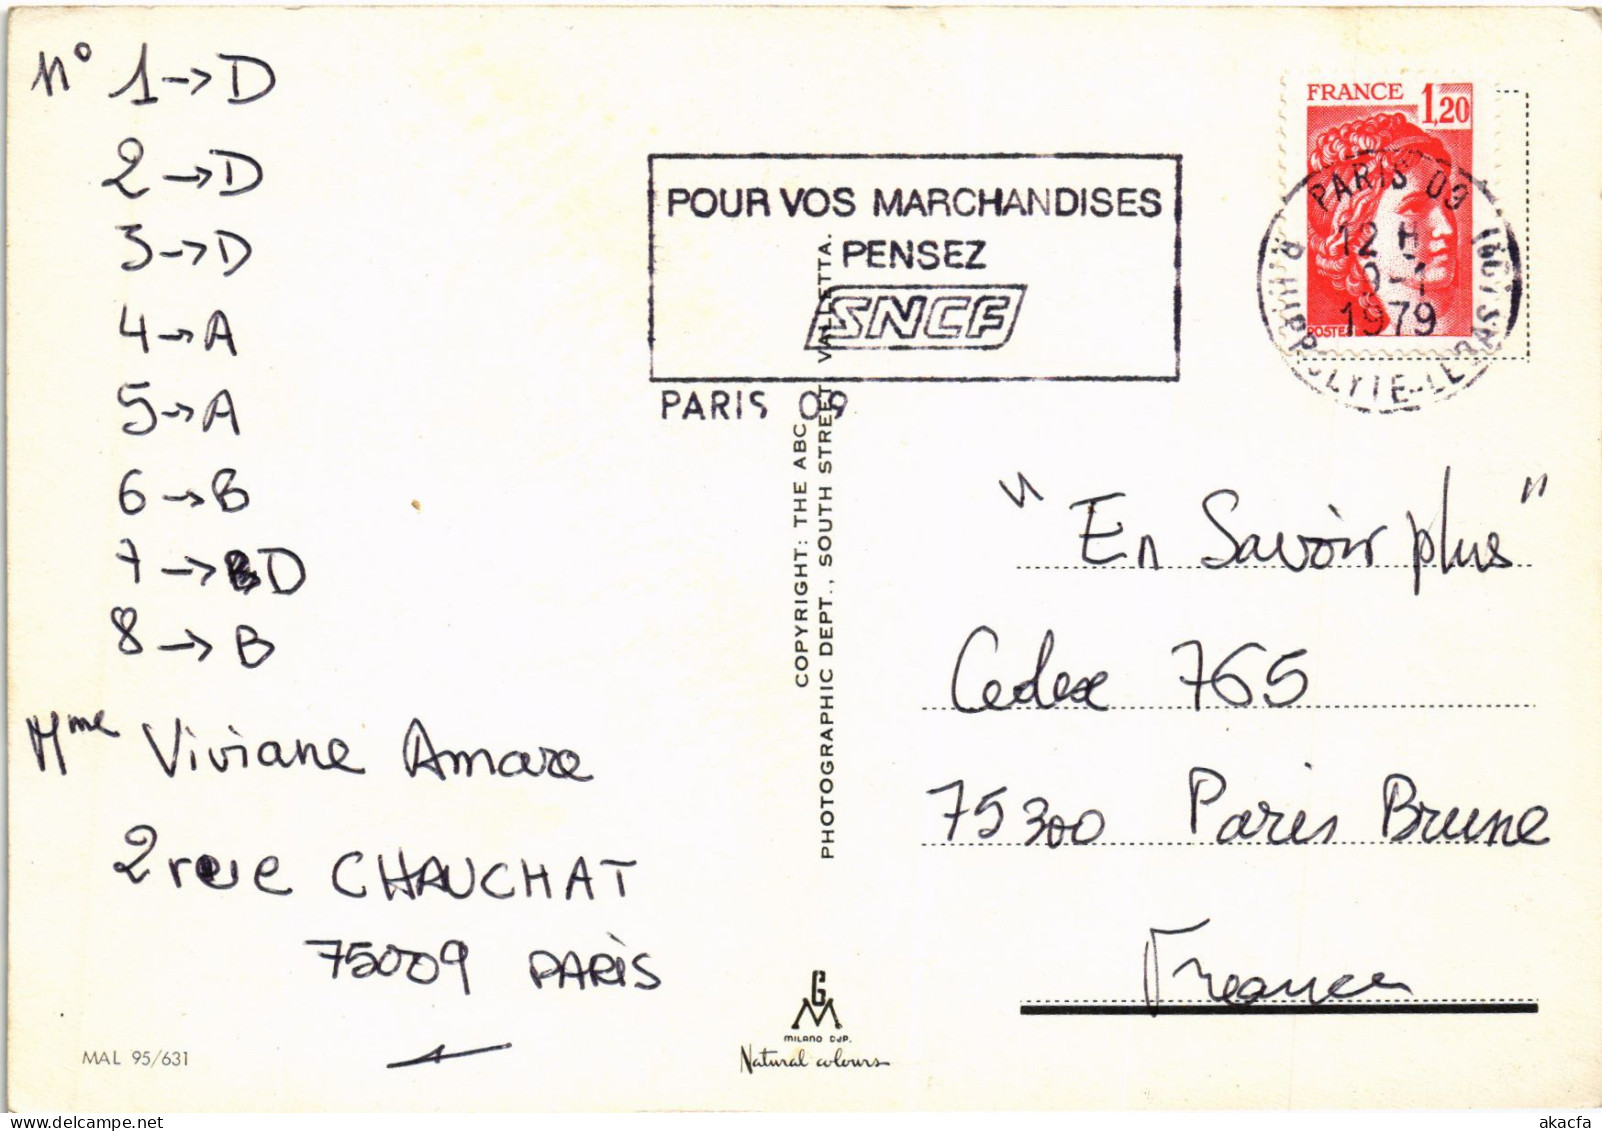 n° 1→D
2→D
3→D
4→A
5→A
6→B
7→D
8→B
Mme Viviane Amare
2 rue CHAUCHAT
75009 PARIS
MAL 95/631
POUR VOS MARCHANDISES
PENSEZ
SNCF
PARIS 09
COPYRIGHT: THE ABC
PHOTOGRAPHIC DEPT., SOUTH STREET VALLETTA.
GM
MILANO DIP.
Natural colours
FRANCE 1,20
POSTES
PARIS 09
12 H
1979
R. HIPPOLYTE-LEBAS (9E)
"En Savoir plus"
Cedex 765
75300 Paris Brune
France
akacfa